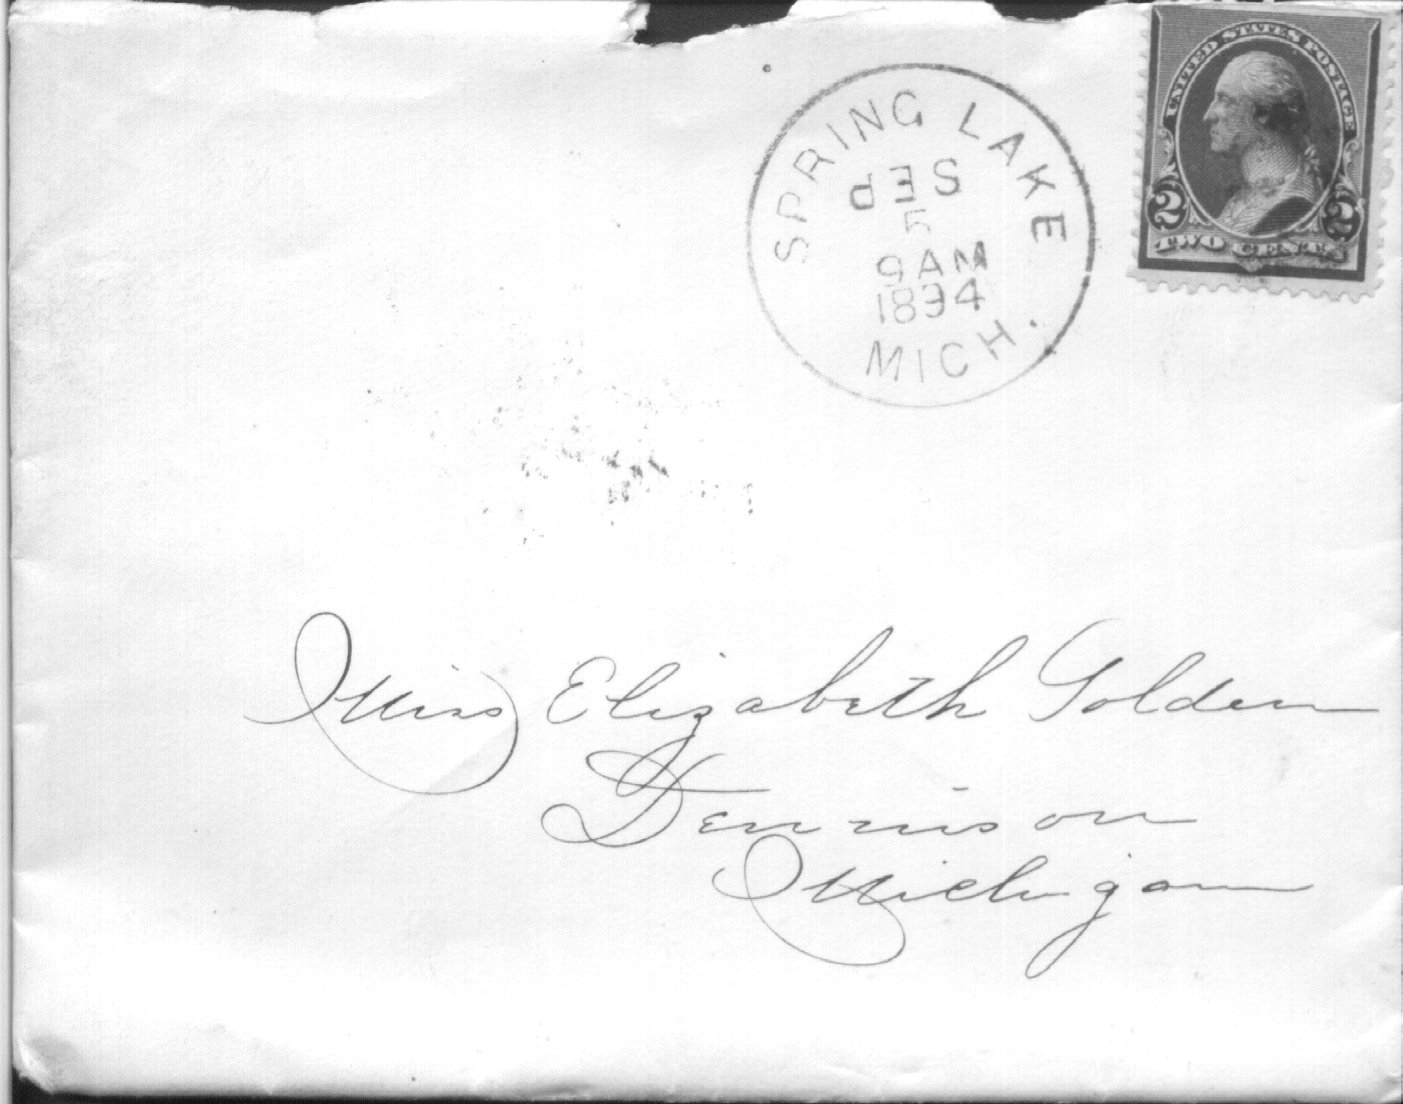 SPRING LAKE
SEP
5
9 AM
1894
MICH.
UNITED STATES POSTAGE
2 2
TWO CENTS
Miss Elizabeth Golden
Dennison
Michigan